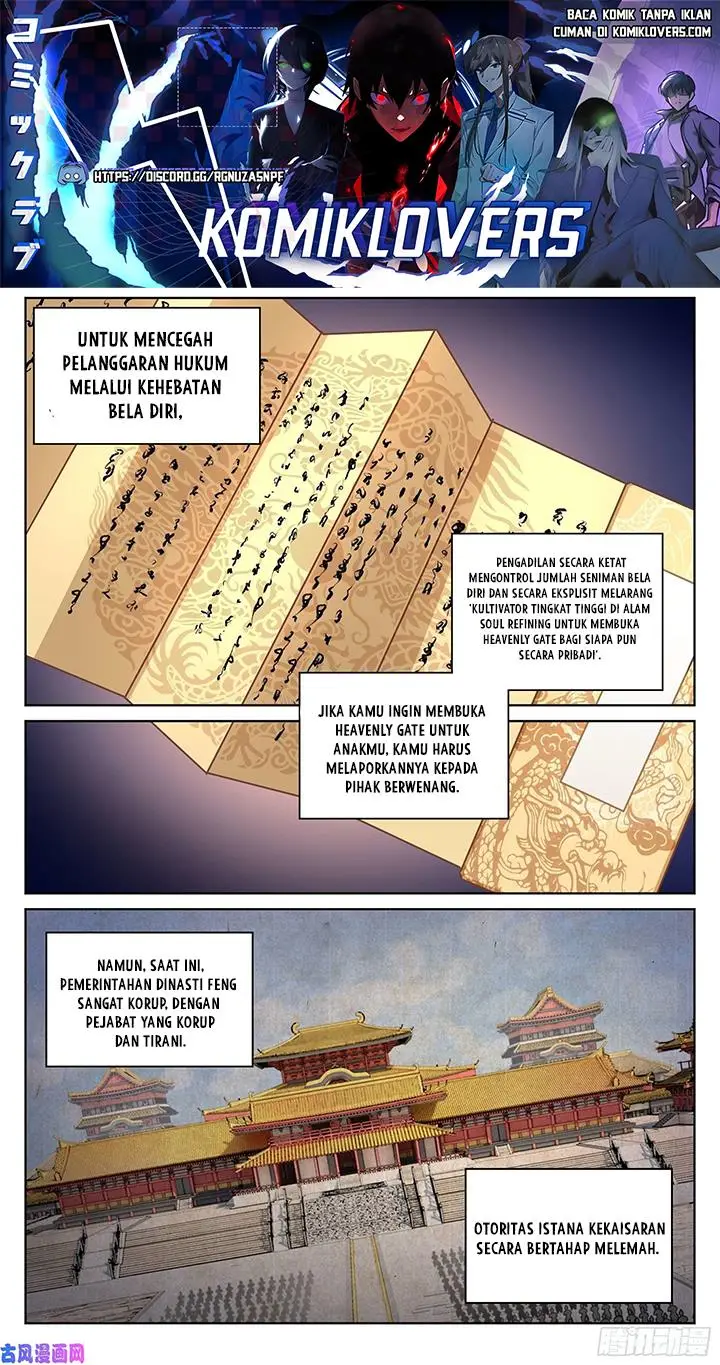 コミックラブ
BACA KOMIK TANPA IKLAN
CUMAN DI KOMIKLOVERS.COM
HTTPS://DISCORD.GG/RGNUZASNPF
KOMIKLOVERS
UNTUK MENCEGAH
PELANGGARAN HUKUM
MELALUI KEHEBATAN
BELA DIRI,
PENGADILAN SECARA KETAT
MENGONTROL JUMLAH SENIMAN BELA
DIRI DAN SECARA EKSPLISIT MELARANG
'KULTIVATOR TINGKAT TINGGI DI ALAM
SOUL REFINING UNTUK MEMBUKA
HEAVENLY GATE BAGI SIAPA PUN
SECARA PRIBADI'.
JIKA KAMU INGIN MEMBUKA
HEAVENLY GATE UNTUK
ANAKMU, KAMU HARUS
MELAPORKANNYA KEPADA
PIHAK BERWENANG.
NAMUN, SAAT INI,
PEMERINTAHAN DINASTI FENG
SANGAT KORUP, DENGAN
PEJABAT YANG KORUP
DAN TIRANI.
OTORITAS ISTANA KEKAISARAN
SECARA BERTAHAP MELEMAH.
古风漫画网
腾讯动漫